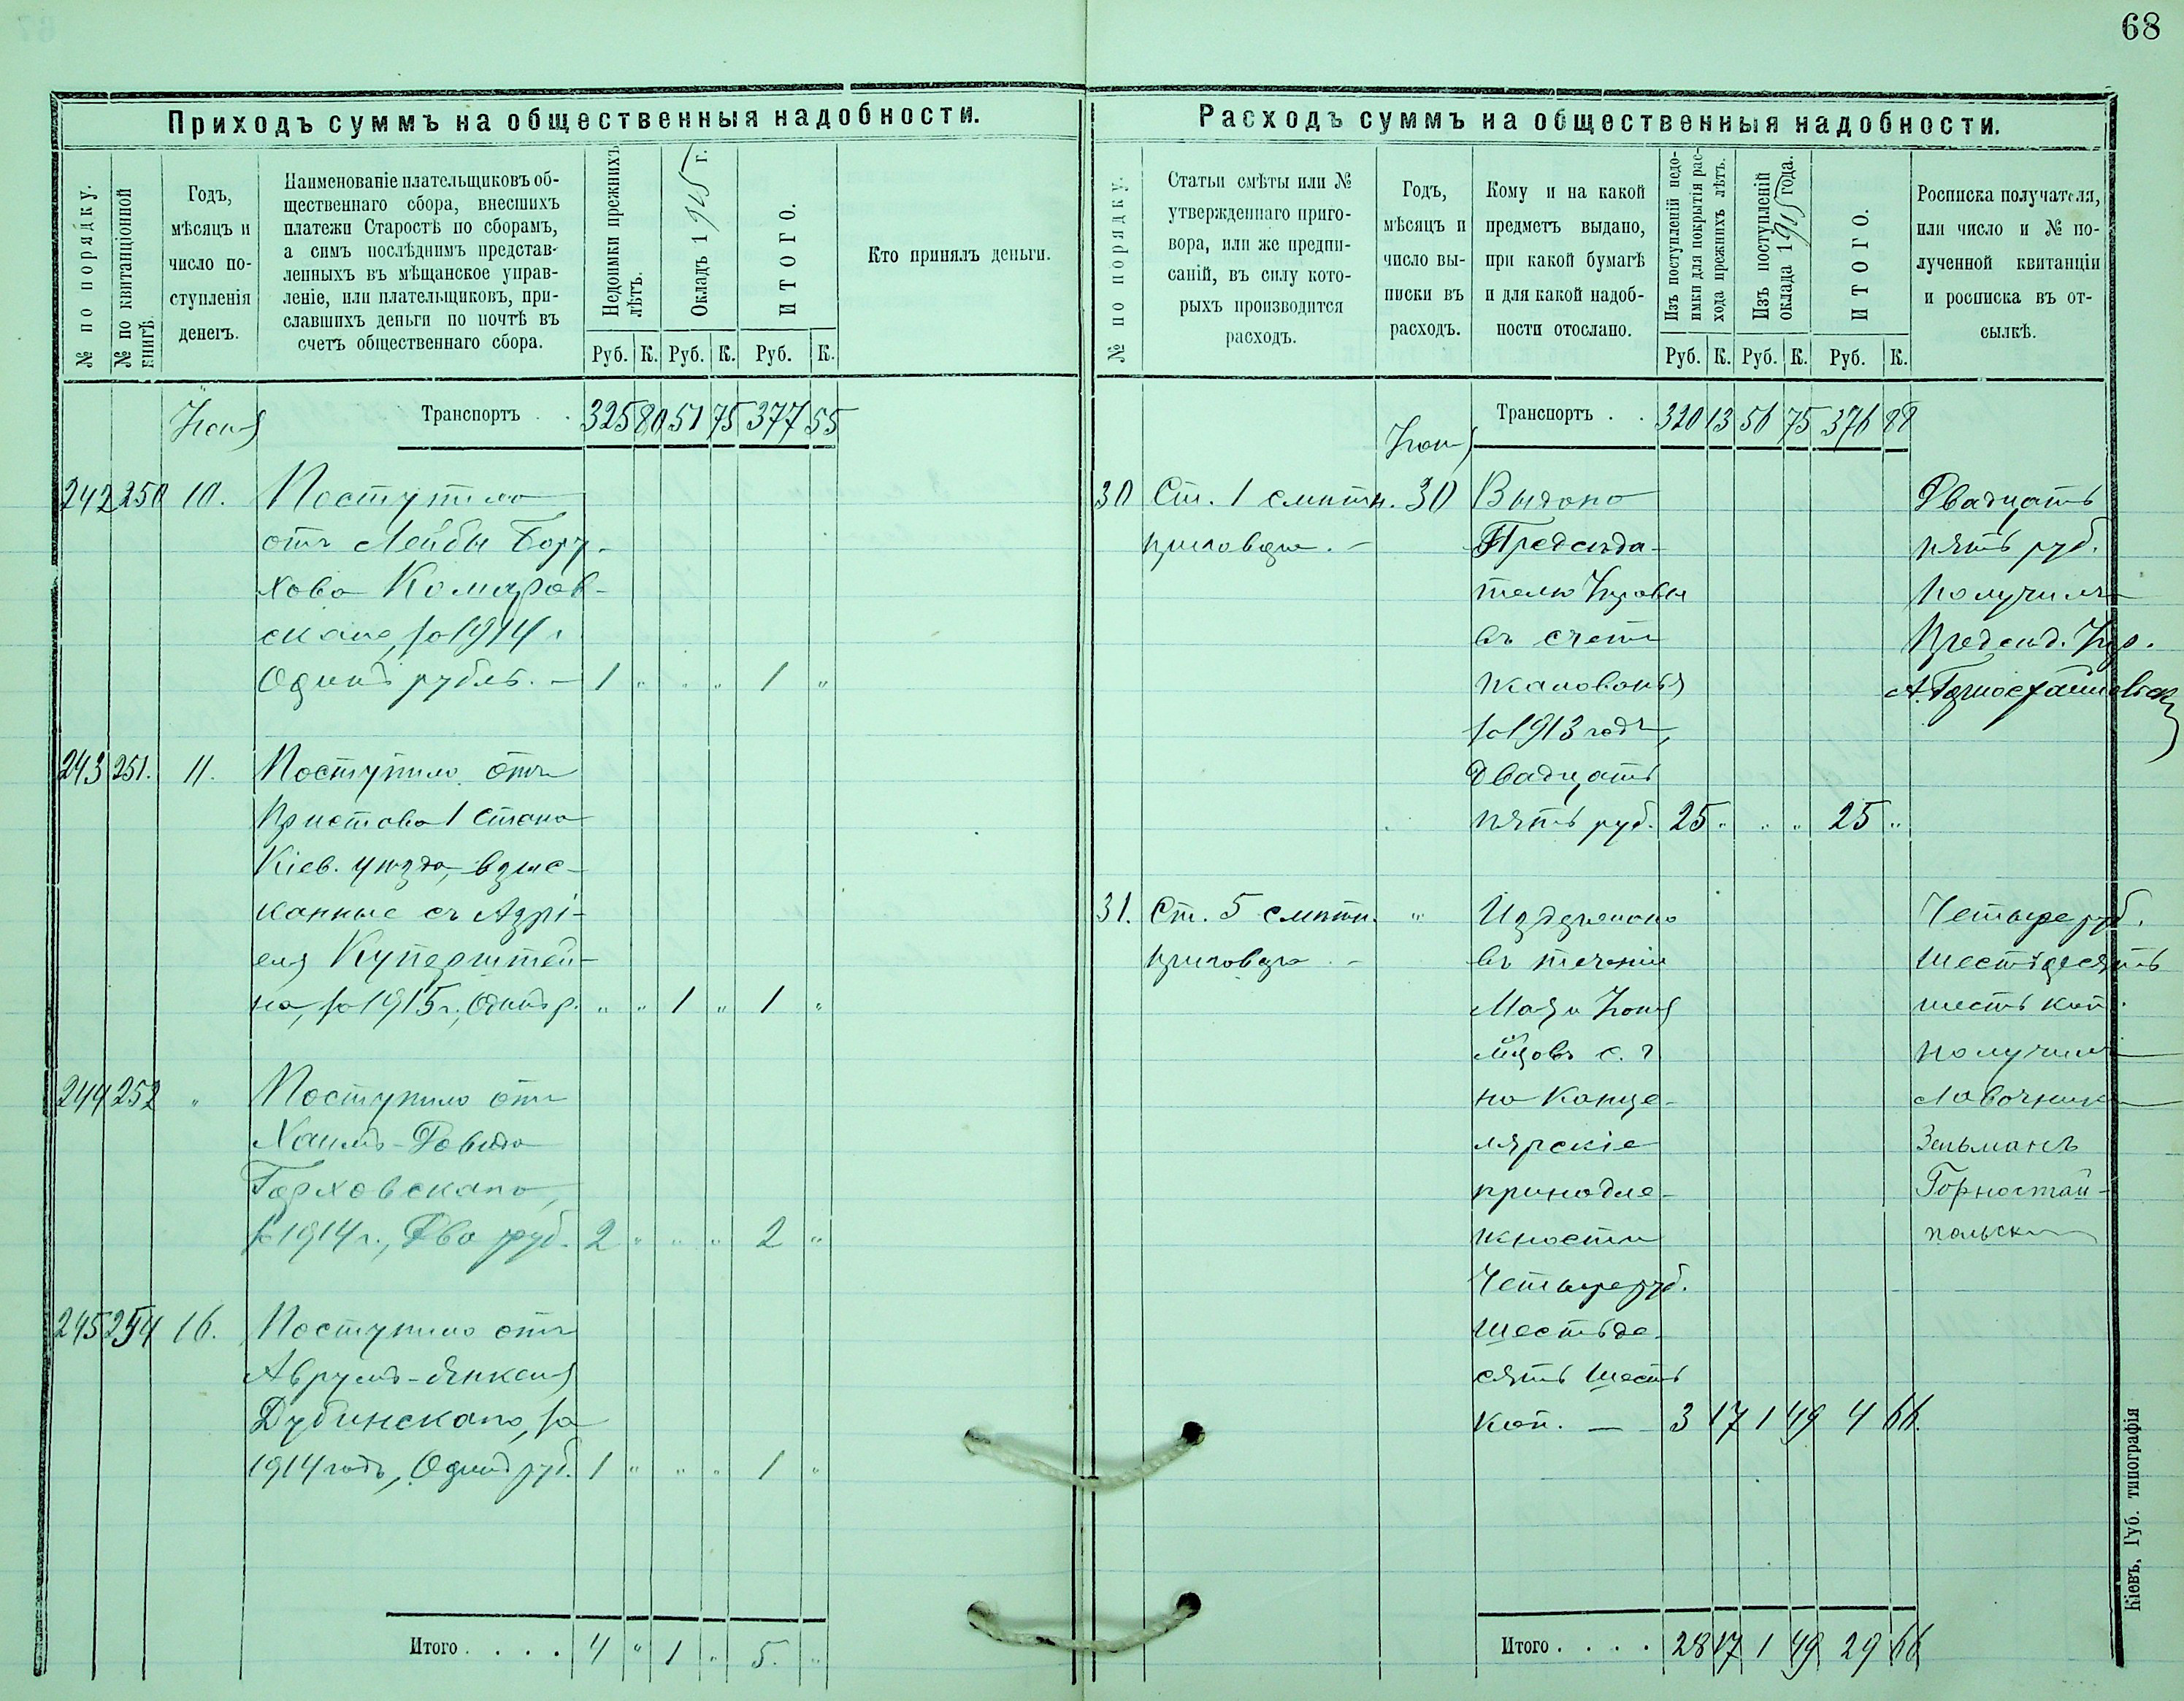 68
Приходъ суммъ на общественныя надобности.
№ по порядку.
№ по квитанціонной книгѣ.
Годъ,
мѣсяцъ и
число по-
ступленія
денегъ.
Наименованіе плательщиковъ об-
щественнаго сбора, внесшихъ
платежи Старостѣ по сборамъ,
а симъ послѣднимъ представ-
ленныхъ въ мѣщанское управ-
леніе, или плательщиковъ, при-
славшихъ деньги по почтѣ въ
счетъ общественнаго сбора.
Недоимки прежнихъ
лѣтъ.
Окладъ 1915 г.
ИТОГО.
Кто принялъ деньги.
Руб. К. Руб. К. Руб. К.
Іюня
Транспортъ . . 325 80 51 75 377 55
242 250 10. Поступило
отъ Лейбы Бору-
хова Комаров-
скаго, за 1914 г.
Одинъ рубль. — 1 " " " 1 "
243 251. 11. Поступило отъ
Пристава 1 стана
Кіев. уѣзда, взыс-
канные съ Азрі-
еля Куперштей-
на, за 1915 г., Одинъ р. " " 1 " 1 "
244 252 " Поступило отъ
Хаимъ-Давида
Горховскаго,
за 1914 г., Два руб. 2 " " " 2 "
245 254 16. Поступило отъ
Аврумъ-Янкеля
Дубинскаго, за
1914 годъ, Одинъ руб. 1 " " " 1 "
Итого . . . . 4 " 1 " 5. "
Расходъ суммъ на общественныя надобности.
№ по порядку.
Статьи смѣты или №
утвержденнаго приго-
вора, или же предпи-
саній, въ силу кото-
рыхъ производится
расходъ.
Годъ,
мѣсяцъ и
число вы-
писки въ
расходъ.
Кому и на какой
предметъ выдано,
при какой бумагѣ
и для какой надоб-
ности отослано.
Изъ поступленій недо-
имки для покрытія рас-
хода прежнихъ лѣтъ.
Изъ поступленій
оклада 1915 года.
ИТОГО.
Росписка получателя,
или число и № по-
лученной квитанціи
и росписка въ от-
сылкѣ.
Руб. К. Руб. К. Руб. К.
Іюня
Транспортъ . . 320 13 56 75 376 88
30 Ст. 1 смѣтн. 30 Выдано
приговора. —
Предсѣда-
телю Управы
въ счетъ
жалованья
за 1913 годъ,
Двадцать
пять руб. 25 " " " 25 "
Двадцать
пять руб.
получилъ
Предсѣд. Упр.
31. Ст. 5 смѣтн. " Издержано
приговора —
въ теченіи
Мая и Іюня
м-цовъ с. г.
на Канце-
лярскіе
принадле-
жности
Четыре руб.
Шестьде-
сятъ шесть
коп. — 3 17 1 49 4 66.
Четыре руб.
шестьдесятъ
шесть коп.
получилъ
Лавочникъ
Зельманъ
Горностай-
польскій
Итого . . . . 28 17 1 49 29 66
Кіевъ, Губ. типографія